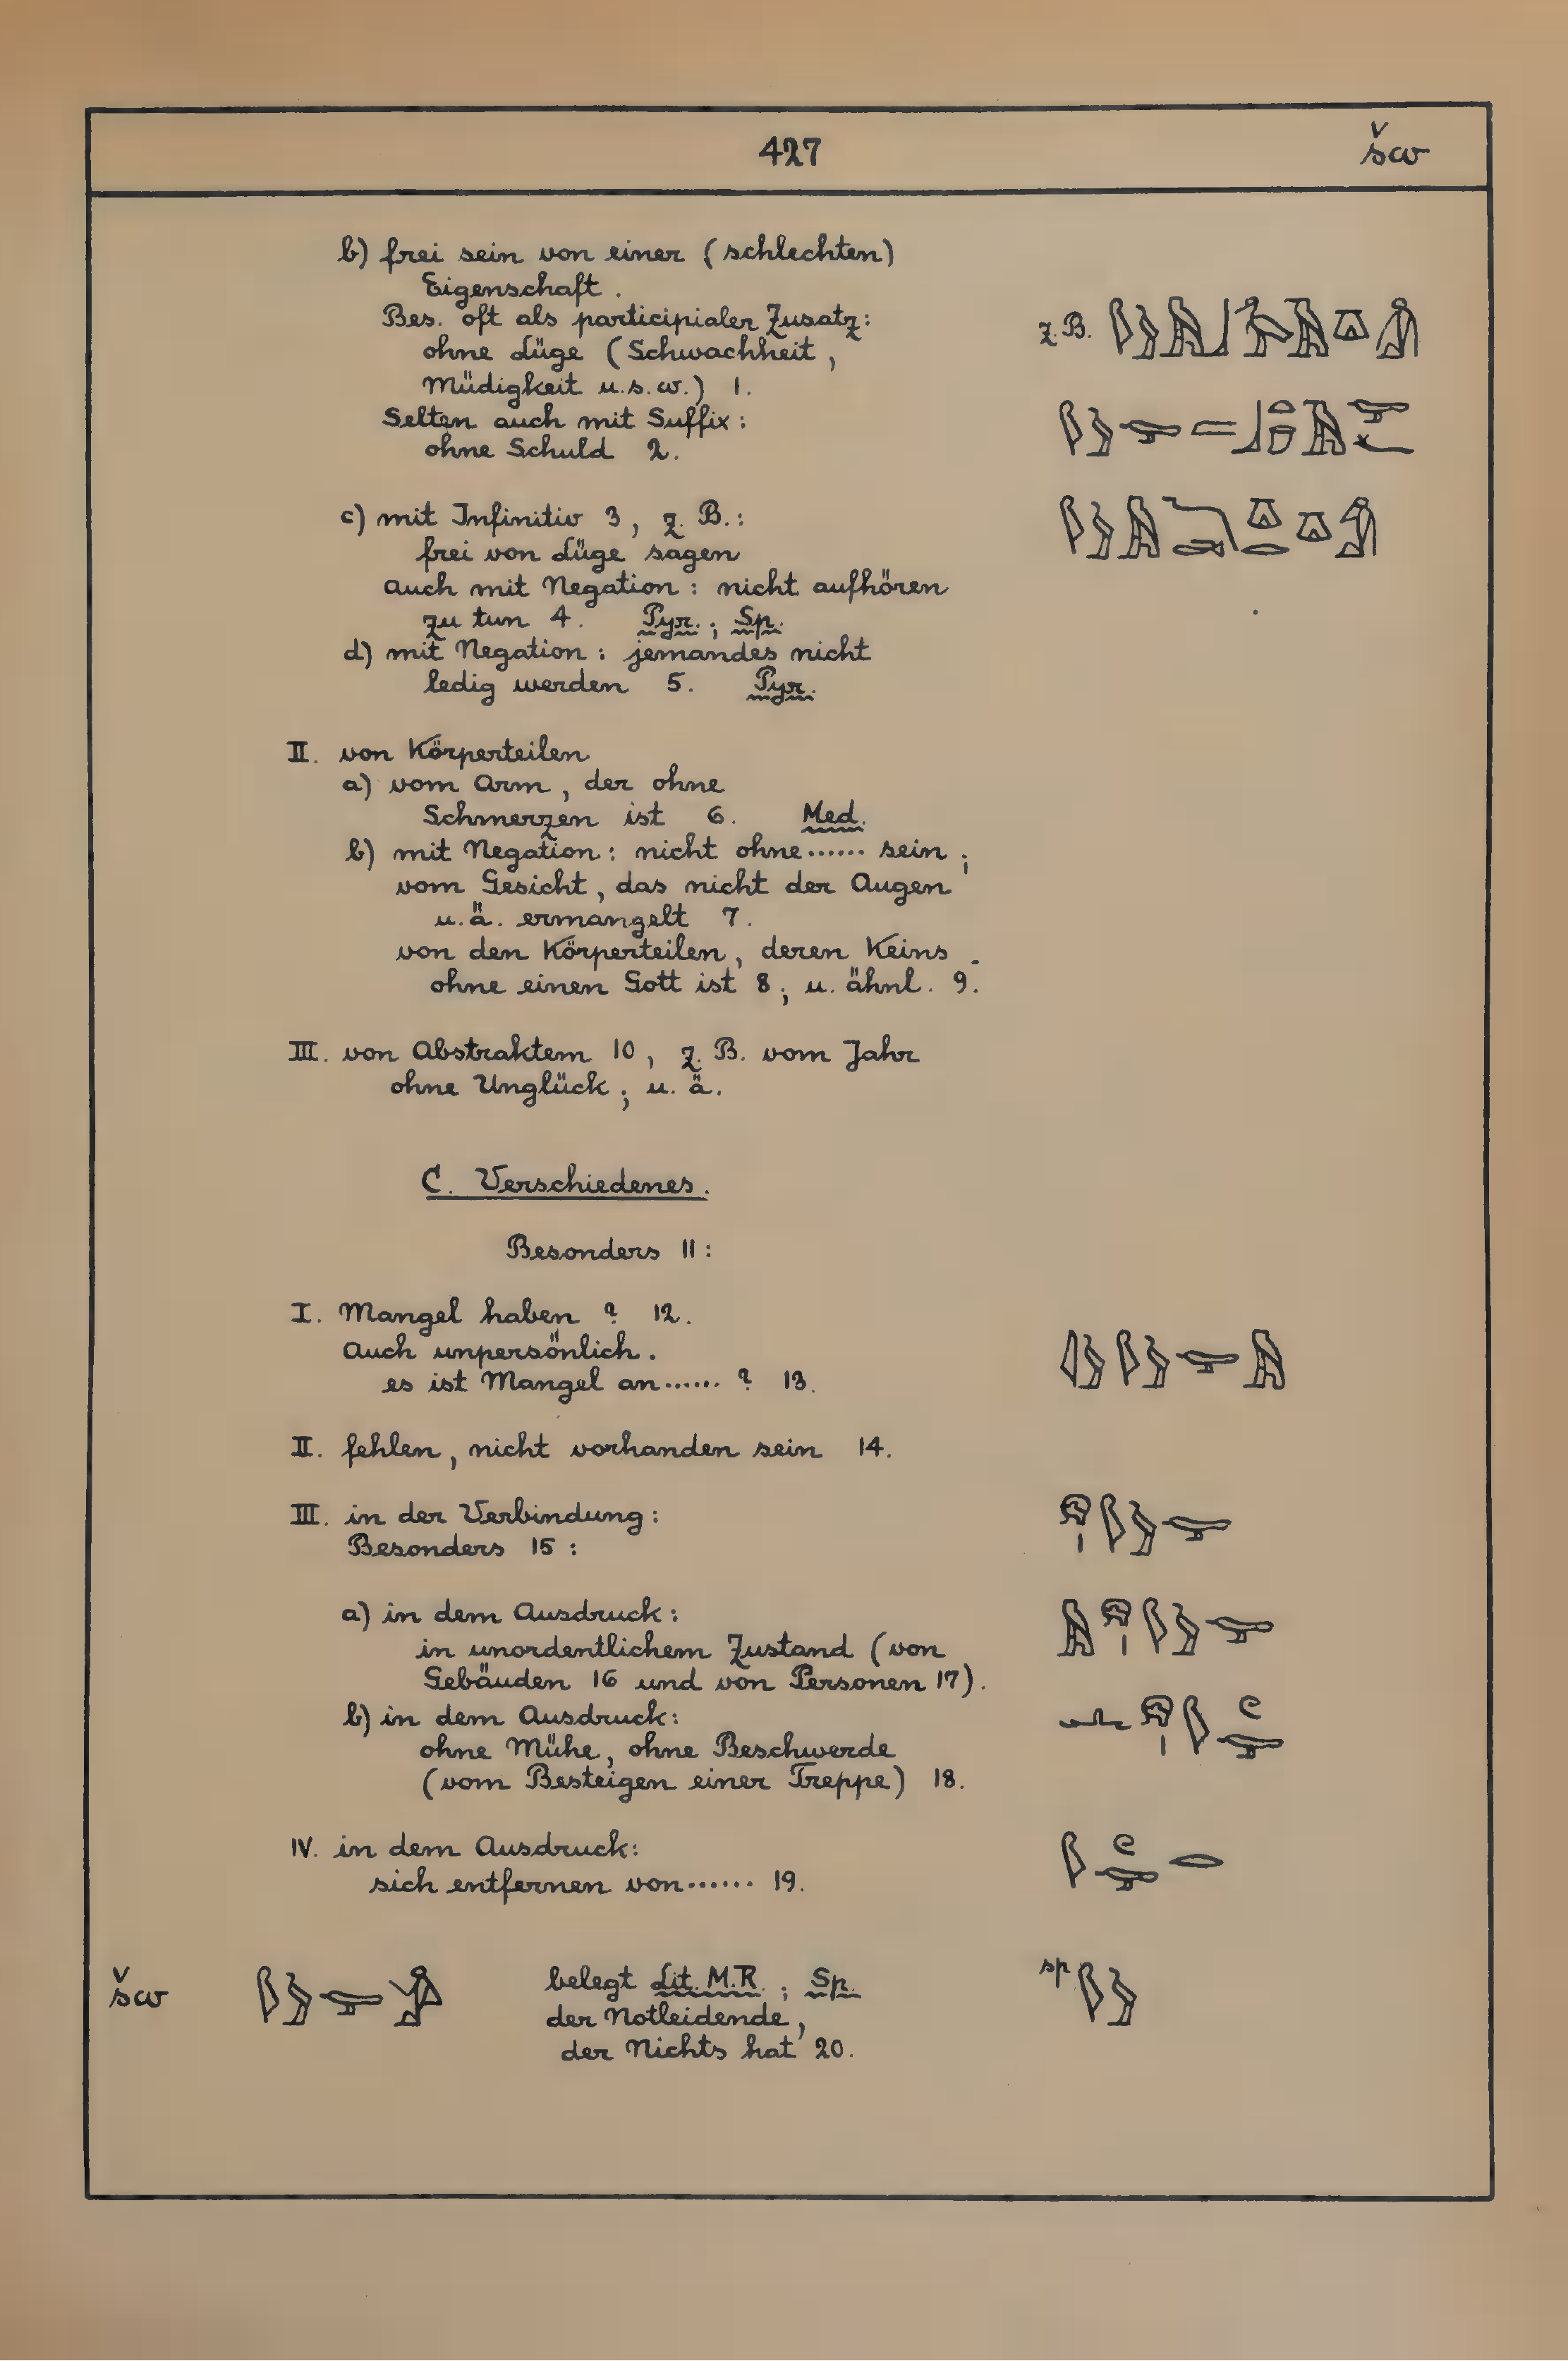 427 šw
b) frei sein von einer (schlechten)
Eigenschaft.
Bes. oft als participialer Zusatz: z.B.
ohne Lüge (Schwachheit,
Müdigkeit u.s.w.) 1.
Selten auch mit Suffix:
ohne Schuld 2.
c) mit Infinitiv 3, z. B.:
frei von Lüge sagen
Auch mit Negation: nicht aufhören
zu tun 4. Pyr.; Sp.
d) mit Negation: jemandes nicht
ledig werden 5. Pyr.
II. von Körperteilen
a) vom Arm, der ohne
Schmerzen ist 6. Med.
b) mit Negation: nicht ohne...... sein;
vom Gesicht, das nicht der Augen
u.ä. ermangelt 7.
von den Körperteilen, deren Keins
ohne einen Gott ist 8; u. ähnl. 9.
III. von Abstraktem 10, z. B. vom Jahr
ohne Unglück; u. ä.
C. Verschiedenes.
Besonders 11:
I. Mangel haben ? 12.
Auch unpersönlich.
es ist Mangel an...... ? 13.
II. fehlen, nicht vorhanden sein 14.
III. in der Verbindung:
Besonders 15:
a) in dem Ausdruck:
in unordentlichem Zustand (von
Gebäuden 16 und von Personen 17).
b) in dem Ausdruck:
ohne Mühe, ohne Beschwerde
(vom Besteigen einer Treppe) 18.
IV. in dem Ausdruck:
sich entfernen von...... 19.
šw belegt Lit. M.R.; Sp. sp
der Notleidende,
der Nichts hat 20.